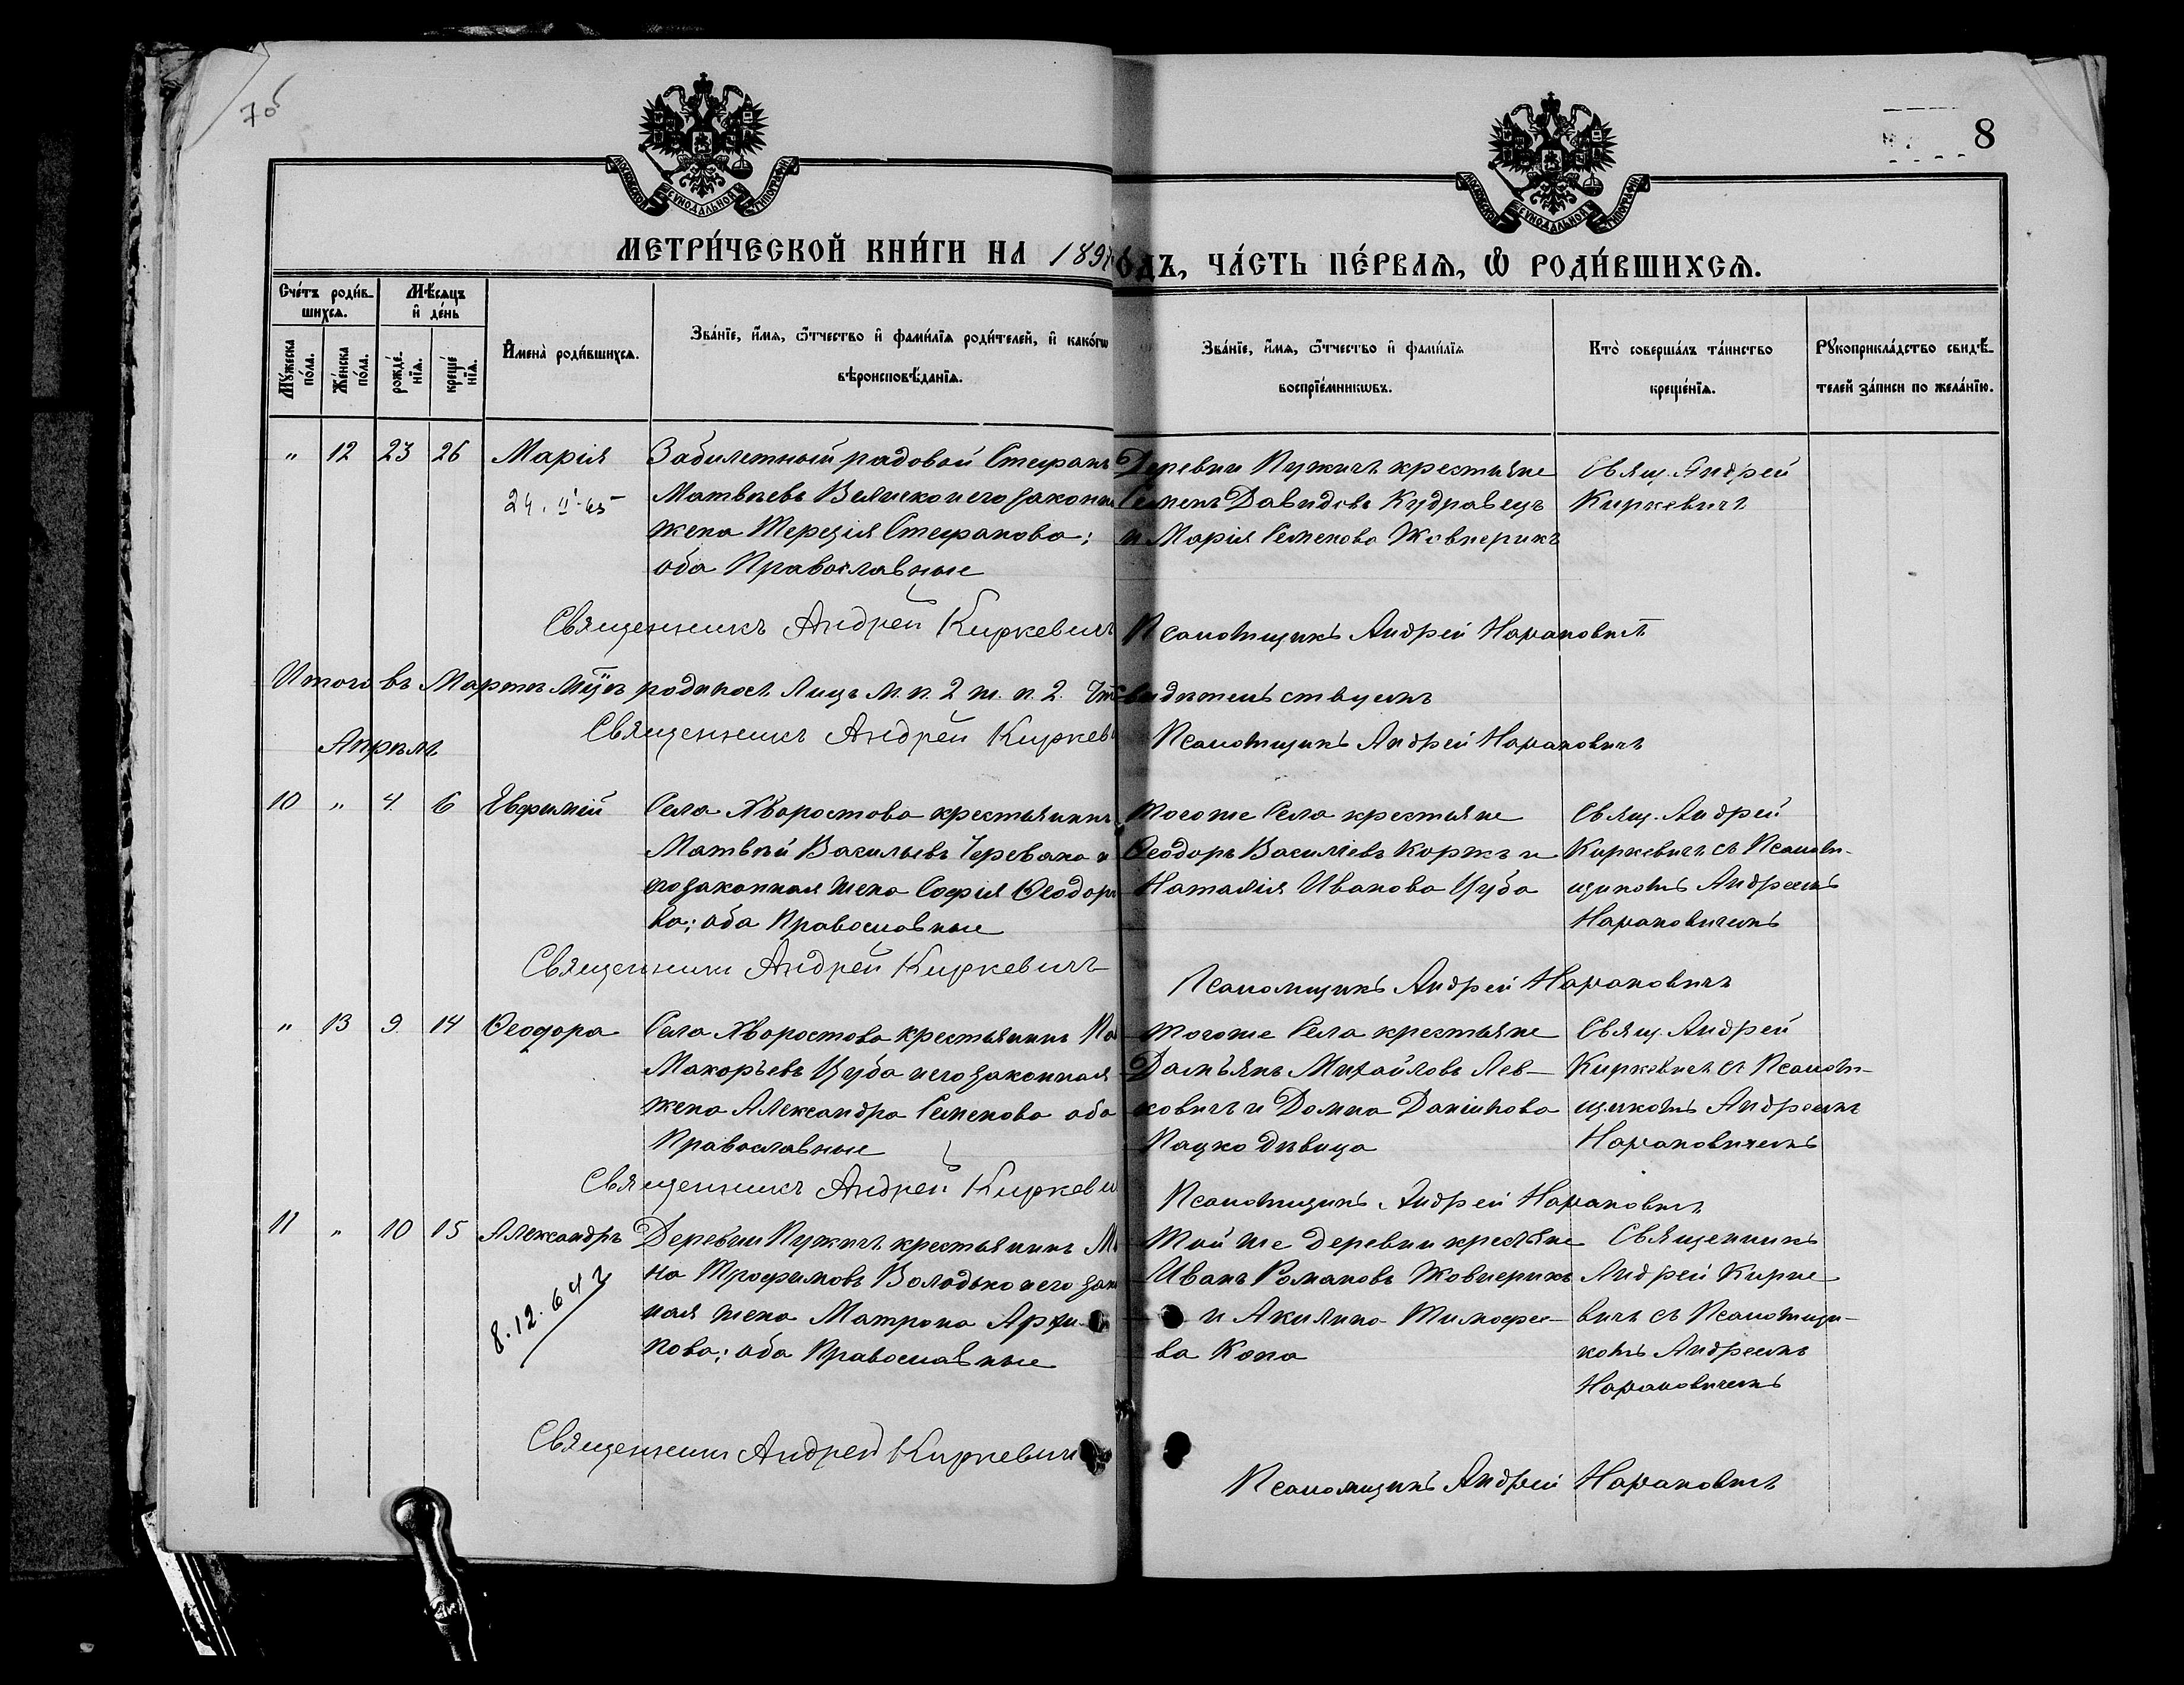 7об
8
МОСКОВСКОЙ СѴНОДАЛЬНОЙ ТИПОГРАФІИ
МОСКОВСКОЙ СѴНОДАЛЬНОЙ ТИПОГРАФІИ
МЕТРИ́ЧЕСКОЙ КНИ́ГИ НА 189
ОДЪ, ЧА́СТЬ ПЕ́РВАѦ, Ѡ РОДИ́ВШИХСѦ.
Сче́тъ роди́в-
шихсѧ.
Мѣ́сѧцъ
и де́нь
Мꙋ́жеска по́ла.
Же́нска по́ла.
рожде́нїѧ.
креще́нїѧ.
Имена̀ роди́вшихсѧ.
Зва́нїе, и́мѧ, ѻ́тчество и фами́лїѧ роди́телей, и како́гѡ
вѣроисповѣ́данїѧ.
Зва́нїе, и́мѧ, ѻ́тчество и фами́лїѧ
воспрїе́мникѡвъ.
Кто̀ соверша́лъ та́инство
креще́нїѧ.
Рꙋкоприкла́дство свидѣ́-
телей за́писи по жела́нїю.
" 12 23 26 Марія Забилетный рядовой Стефанъ
24. II 65 Матвѣевъ его законн
жена Терезія Стефанова;
оба Православные
Деревни Пужичъ крестьяне
Семенъ Давидовъ Кудравецъ
и Марія Семенова Жовнерикъ
Свящ. Андрей
Киркевичъ
Священникъ Андрей Киркевичъ
Псаломщикъ Андрей Нарановичъ
Итого въ Мартѣ мцѣ родилось лицъ м. п. 2 ж. п. 2. Что
свидѣтельствуемъ
Священникъ Андрей Киркев
Псаломщикъ Андрей Нарановичъ
Апрѣль
10 " 4 6 Евфимій Села Хворостова крестьянинъ
Матвѣй Васильевъ Черевако и
его законная жена Софія Ѳеодоро
ва; оба Православные
Тогоже Села крестьяне
Ѳеодоръ Василіевъ Коржъ и
Наталія Иванова Цуба
Свящ. Андрей
Киркевичъ съ Псалом-
щикомъ Андреемъ
Нарановичемъ
Священникъ Андрей Киркевичъ
Псаломщикъ Андрей Нарановичъ
" 13 9 14 Ѳеодора Села Хворостова крестьянинъ
Макарьевъ Цуба и его законная
жена Александра Семенова оба
Православные
тогоже Села крестьяне
Дамьянъ Михайловъ Лев-
ковичъ и Домна Даніилова
Пацко дѣвица
Свящ. Андрей
Киркевичъ съ Псалом-
щикомъ Андреемъ
Нарановичемъ
Священникъ Андрей Киркеви
Псаломщикъ Андрей Нарановичъ
11 " 10 15 Александръ Деревни Пужичъ крестьянинъ
на Трофимовъ Володько и его зак
ная жена Матрона
нова; оба Православные
8.12.64г
Той же деревни крестьяне
Иванъ Романовъ Жовнерикъ
и Акилина Тимофее-
ва Копа
Священникъ
Андрей Кирке
вичъ съ Псаломщи-
комъ Андреемъ
Нарановичемъ
Священникъ Андрей Киркевичъ
Псаломщикъ Андрей Нарановичъ